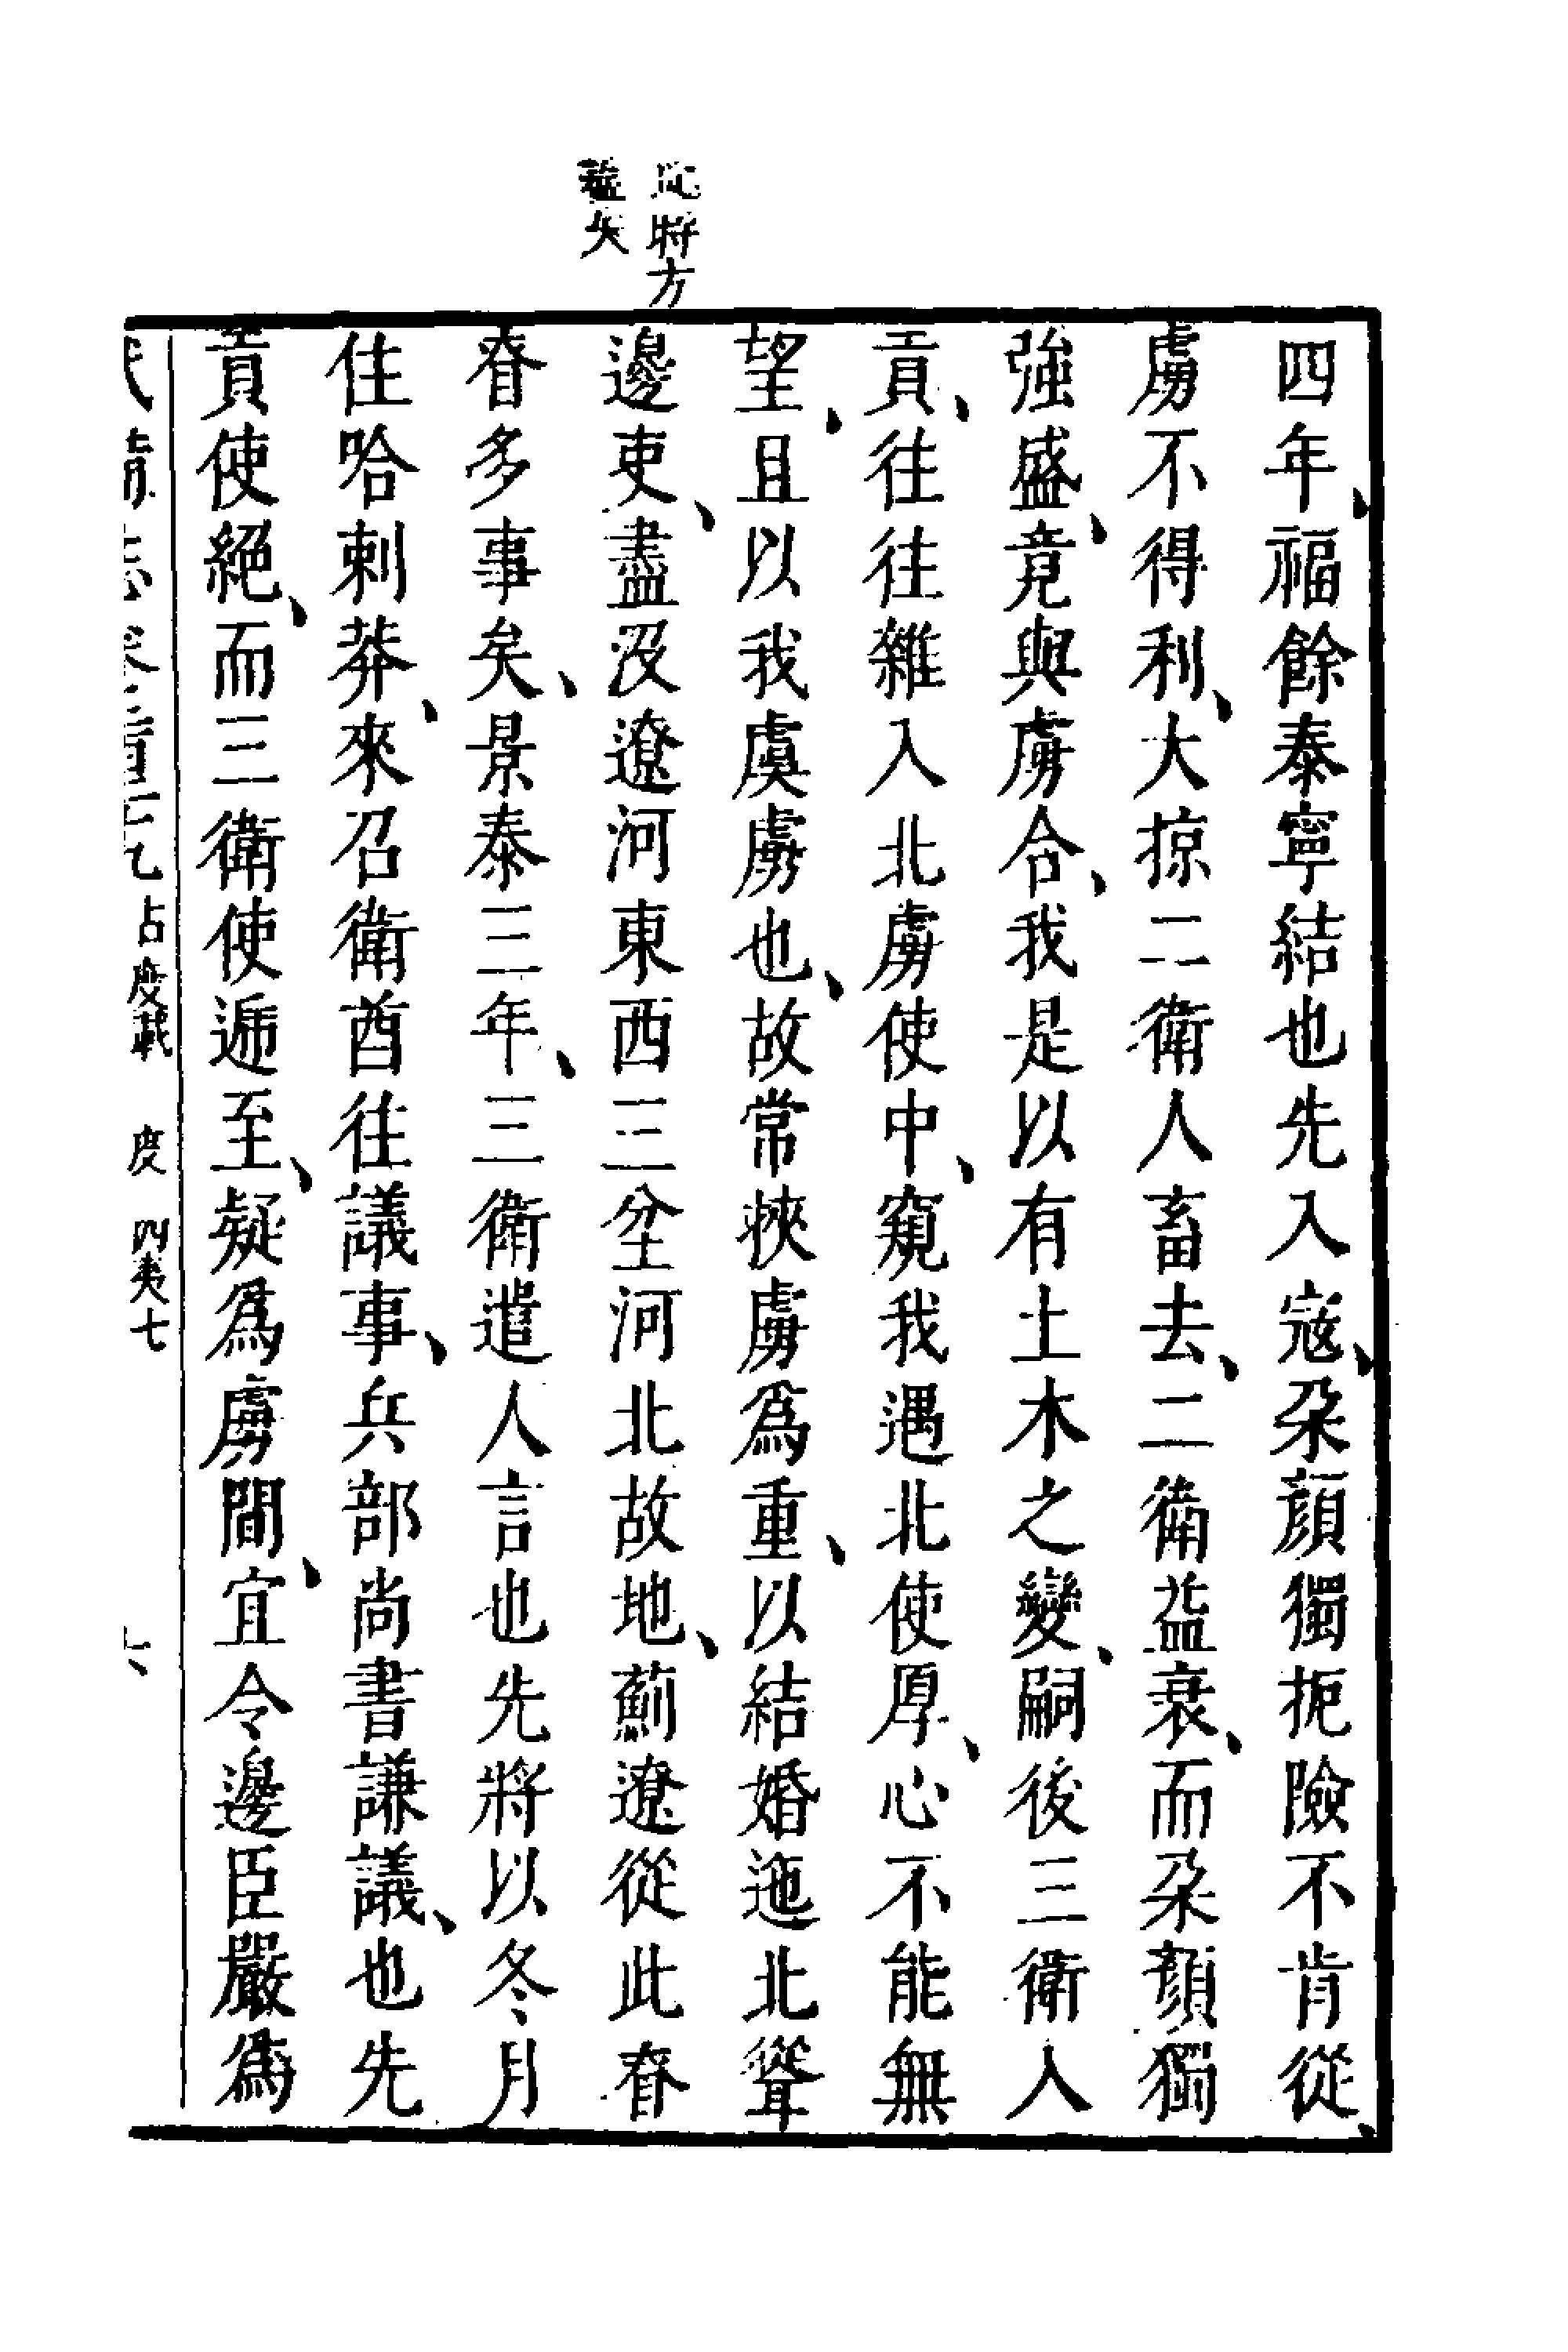 此時方
蓋矣
四年、福餘泰寧結也先入寇、朶顏獨扼險不肯從、
虜不得利、大掠二衛人畜去、二衛益衰、而朶顏獨
強盛、竟與虜合、我是以有土木之變、嗣後三衛入
貢、往往雜入北虜使中、窺我遇北使厚、心不能無
望、且以我虞虜也、故常挾虜爲重、以結婚迤北聳
邊吏、盡沒遼河東西三坌河北故地、薊遼從此春
春多事矣、景泰三年、三衛遣人言也先將以冬月
住哈剌莽、來召衛酋往議事、兵部尚書謙議、也先
貢使絕、而三衛使遞至、疑爲虜間、宜令邊臣嚴爲
武備志卷二百二十九 占度載 度 四夷七 六